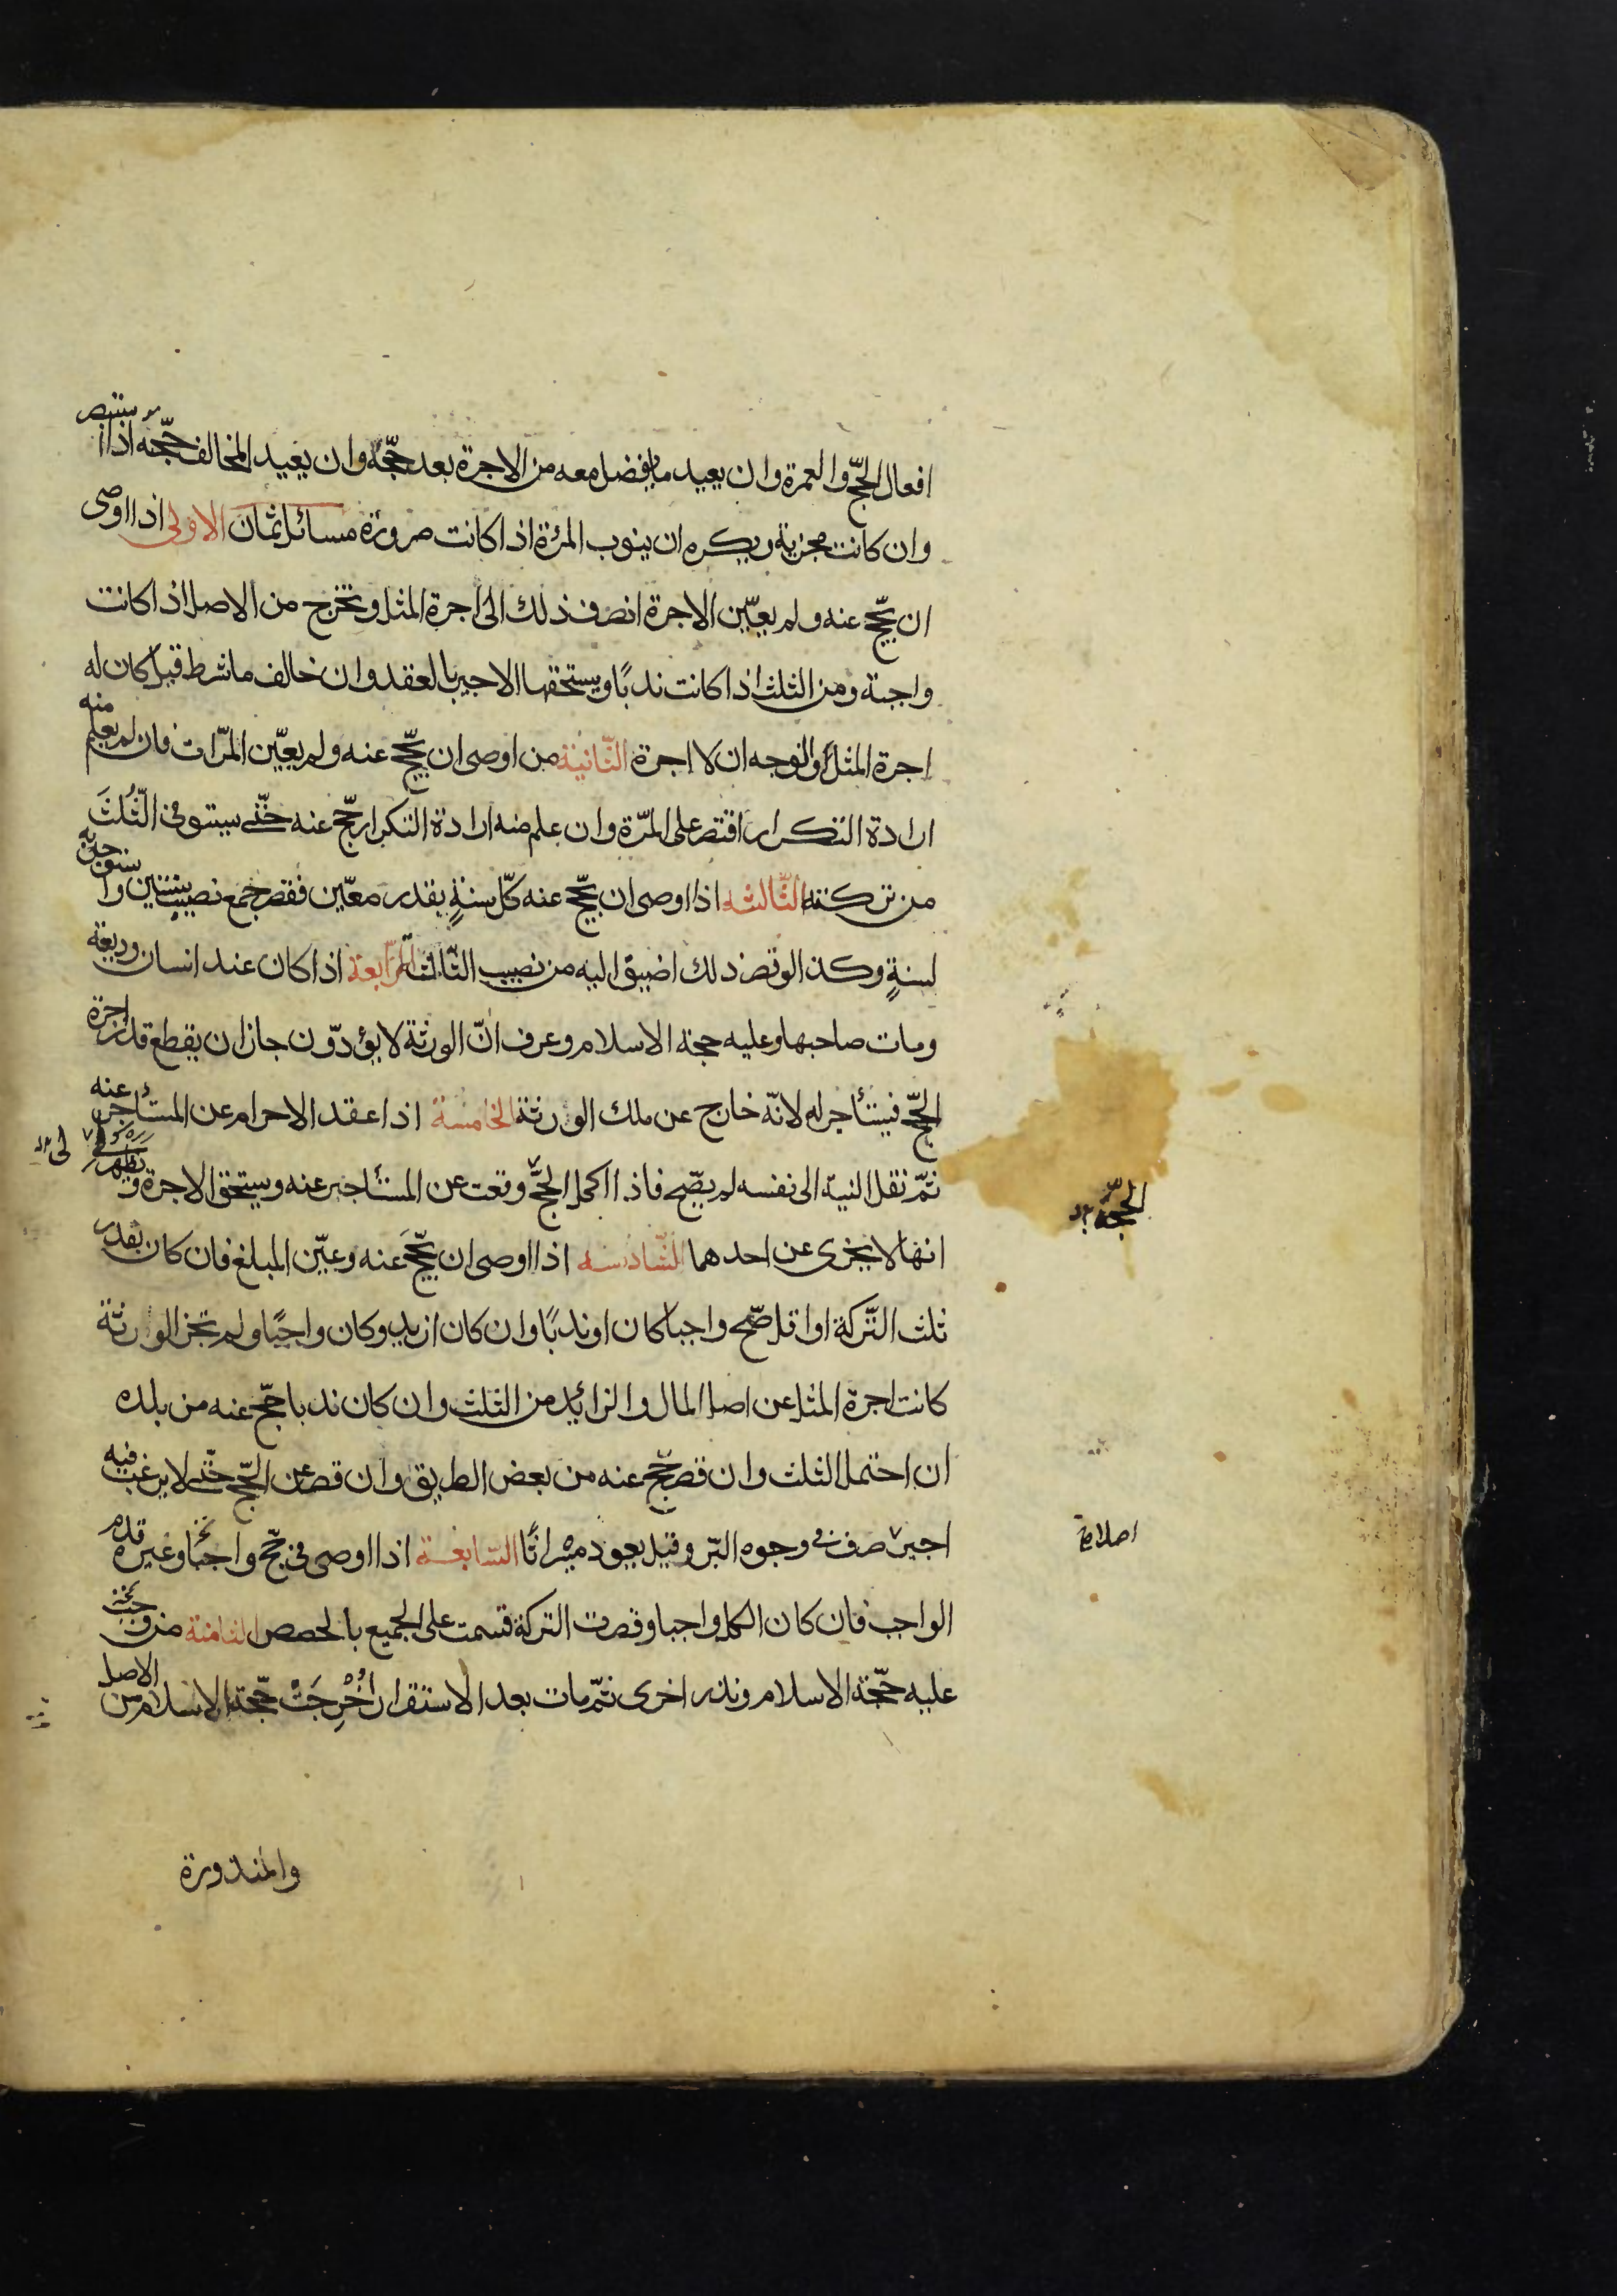 افعال الحجّ والعمرة وان يعيد ما يفضل معه من الاجرة بعد حجّه وان يعيد المخالف حجّه اذا استبصر
وان كانت مجزية ويكره ان ينوب المرئة اذا كانت صرورة مسائل ثمان الاولى اذا اوصى
ان يحجّ عنه ولم يعيّن الاجرة انصرف ذلك الى اجرة المثل وتخرج من الاصل اذا كانت
واجبة ومن الثلث اذا كانت ندبًا ويستحقها الاجير بالعقد وان خالف ما شرط قيل كان له
اجرة المثل والوجه ان لا اجرة الثّانية من اوصى ان يحجّ عنه ولم يعيّن المرّات فان لم يعلم منه
ارادة التكرار اقتصر على المرّة وان علم منه ارادة التكرار حجّ عنه حتّى يستوفى الثُّلثَ
من تركته الثّالثه اذا اوصى ان يحجّ عنه كلّ سنةٍ بقدر معيّن فقصر جمع نصيب سنتين واستوجر به
لسنةٍ وكذا لو قصر ذلك اضيف اليه من نصيب الثّالث الرّابعة اذا كان عند انسان وديعة
ومات صاحبها وعليه حجة الاسلام وعرف انّ الورثة لا يؤدّون جاز ان يقطع قدر اجرة
الحجّ فيستأجر له لانّه خارج عن ملك الورثة الخامسة اذا عقد الاحرام عن المستأجر عنه
ثمّ نقل النيّة الى نفسه لم يصّح فاذا اكمل الحجّ وقعت عن المستأجر عنه ويستحق الاجرة ويظهر لى
انها لا يجزى عن احدهما السّادسه اذا اوصى ان يحجَّ عنه وعيّن المبلغ فان كان بقدر
ثلث التّركة او اقل صّح واجبا كان او ندبًا وان كان ازيد وكان واجبًا ولم تجز الورثة
كانت اجرة المثل عن اصل المال والزائد من الثلث وان كان ندبا حجّ عنه من بلده
ان احتمل الثلث وان قصر حجّ عنه من بعض الطريق وان قصر عن الحجّ حتّى لا يرغب فيه
اجير صرف فى وجوه البّر وقيل يعود ميراثًا السّابعة اذا اوصى فى حجّ واجبًا وغيره قدم
الواجب فان كان الكل واجبا وقصرت التركة قسمت على الجميع بالحصص الثامنة من وجبت
عليه حجّة الاسلام ونذر اخرى ثمّ مات بعد الاستقرار اُخْرِجَتْ حجّة الاسلام من الاصل
الحجّة
والمنذورة